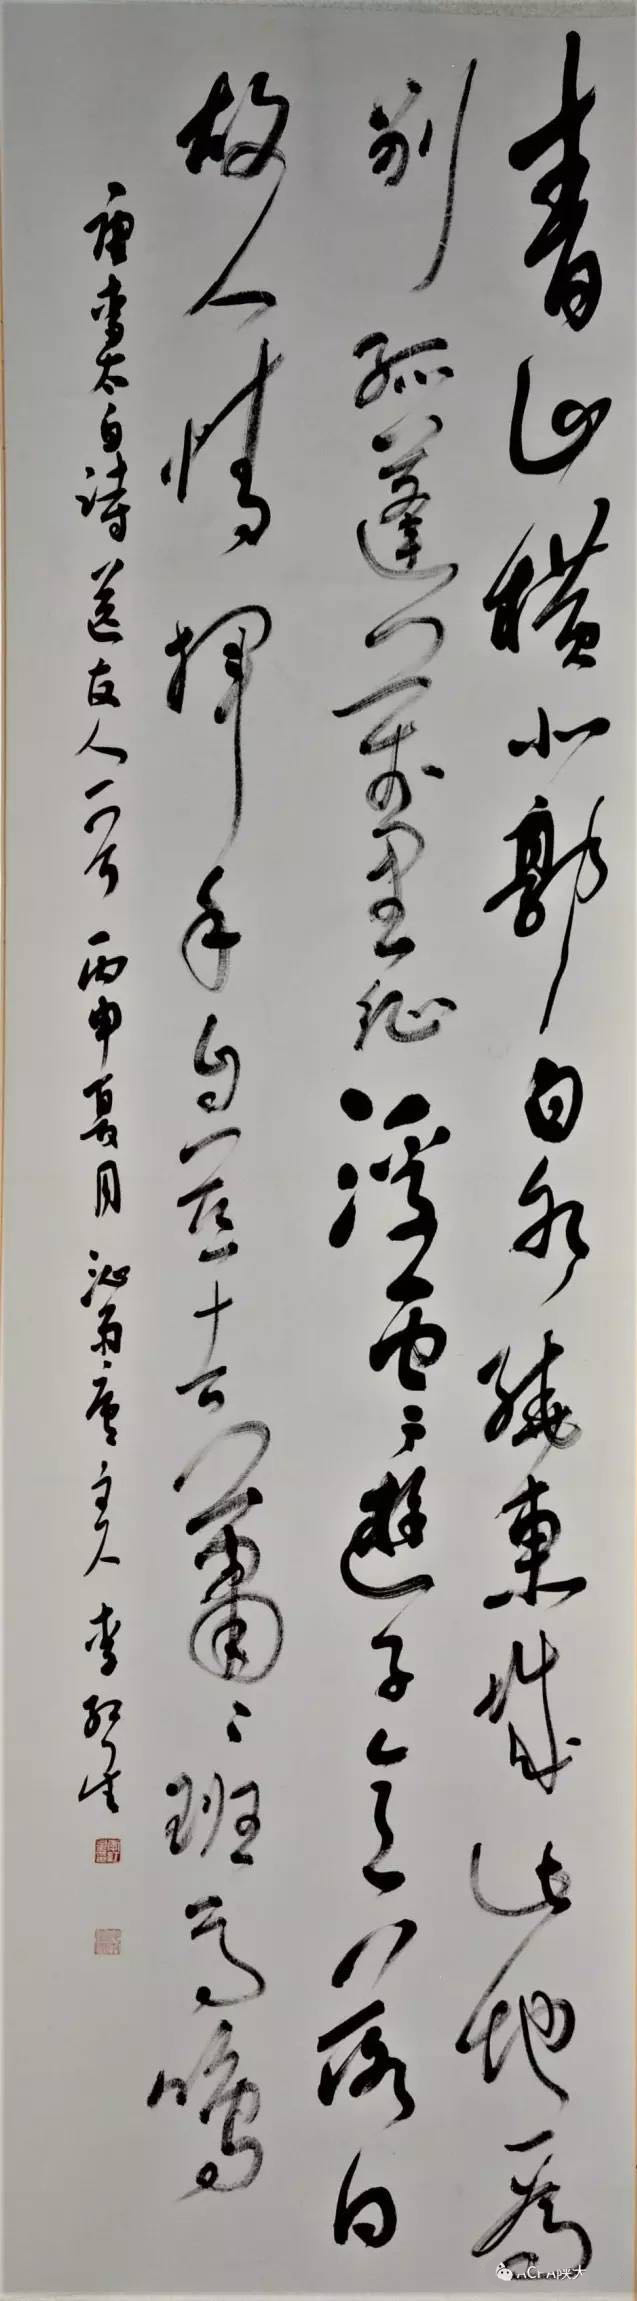 青山橫北郭白水繞東城此地一爲
別孤蓬萬里征浮雲遊子意落日
故人情揮手自茲去蕭々班馬鳴
唐李太白詩送友人一首 丙申夏月 主人 李